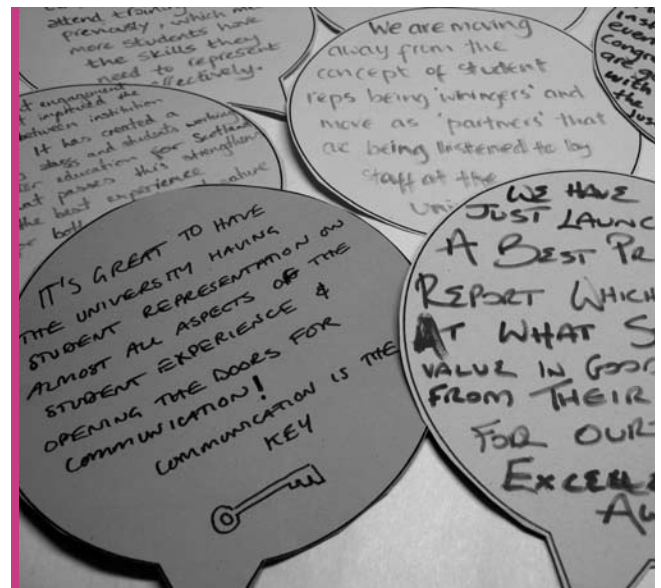 attend training
previously, which
more students have
the skills they
need to represent
effectively.
We are moving
away from the
concept of student
reps being 'whingers' and
more as 'partners' that
are being listened to by
staff at the
engagement
improved the
between institution
It has created a
staff and students working
education for Scotland
passes this strengthens
the best experience
both
IT'S GREAT TO HAVE
THE UNIVERSITY HAVING
STUDENT REPRESENTATION ON
ALMOST ALL ASPECTS OF THE
STUDENT EXPERIENCE &
OPENING THE DOORS FOR
COMMUNICATION!
COMMUNICATION IS THE
KEY
WE HAVE
JUST LAUNC
A BEST PR
REPORT WHICH
AT WHAT S
VALUE IN GOOD
FROM THEIR
FOR OUR
EXCELLE
AW
even
are
with
the